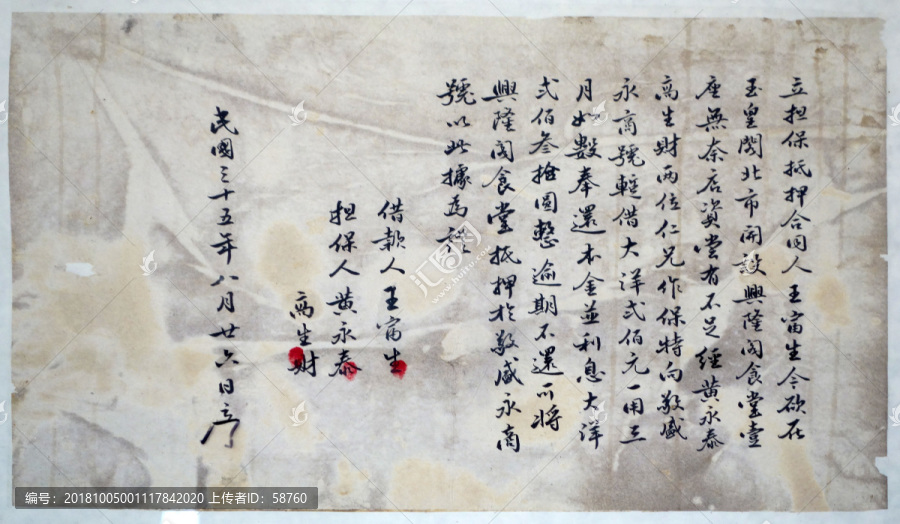 立担保抵押合同人王富生今欲在
玉皇閣北市開設興隆閣食堂壹
座無奈店資尝有不足經黄永泰
高生財两位仁兄作保特向敬盛
永商號輕借大洋弍佰元一用三
月如数奉還本金並利息大洋
弍佰叁拾圆整逾期不還可將
興隆閣食堂抵押於敬盛永商
號以此據為證
借款人王富生
担保人黄永泰
高生財
民國三十五年八月廿六日立
汇图网
编号：20181005001117842020 上传者ID：58760